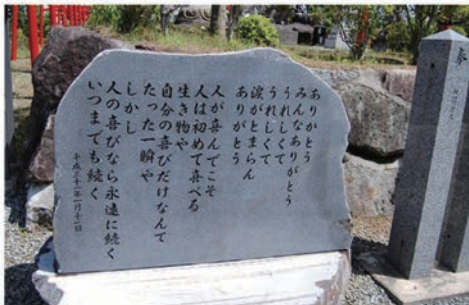 ありがとう
みんなありがとう
うれしくて
うれしくて
涙がとまらん
ありがとう
人が喜んでこそ
人は初めて喜べる
生き物や
自分の喜びだけなんて
たった一瞬や
しかし
人の喜びなら永遠に続く
いつまでも続く
奉